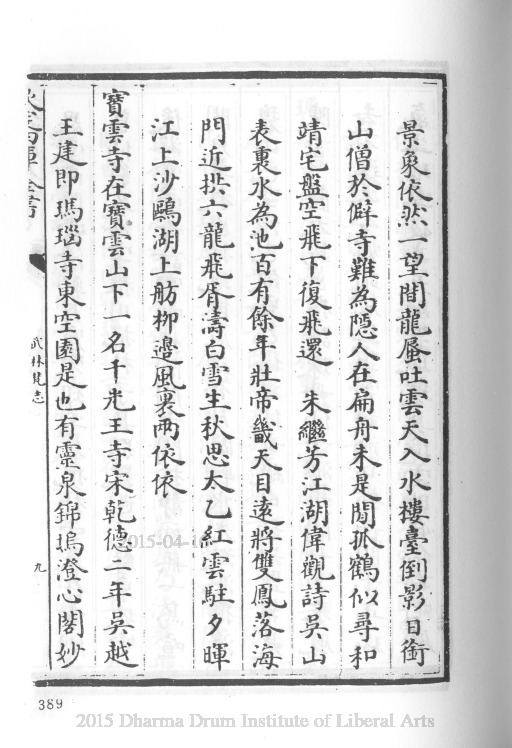 景象依然一望間龍蜃吐雲天入水樓臺倒影日銜
山僧於僻寺難為隱人在扁舟未是閒孤鶴似尋和
靖宅盤空飛下復飛還　朱繼芳江湖偉觀詩吳山
表裏水為池百有餘年壯帝畿天目遠將雙鳳落海
門近拱六龍飛胥濤白雪生秋思太乙紅雲駐夕暉
江上沙鷗湖上舫柳邉風裏兩依依
寳雲寺在寳雲山下一名千光王寺宋乾德二年吳越
王建即瑪瑙寺東空園是也有靈泉錦塢澄心閣妙
武林梵志
九
389
2015-04-1
2015 Dharma Drum Institute of Liberal Arts